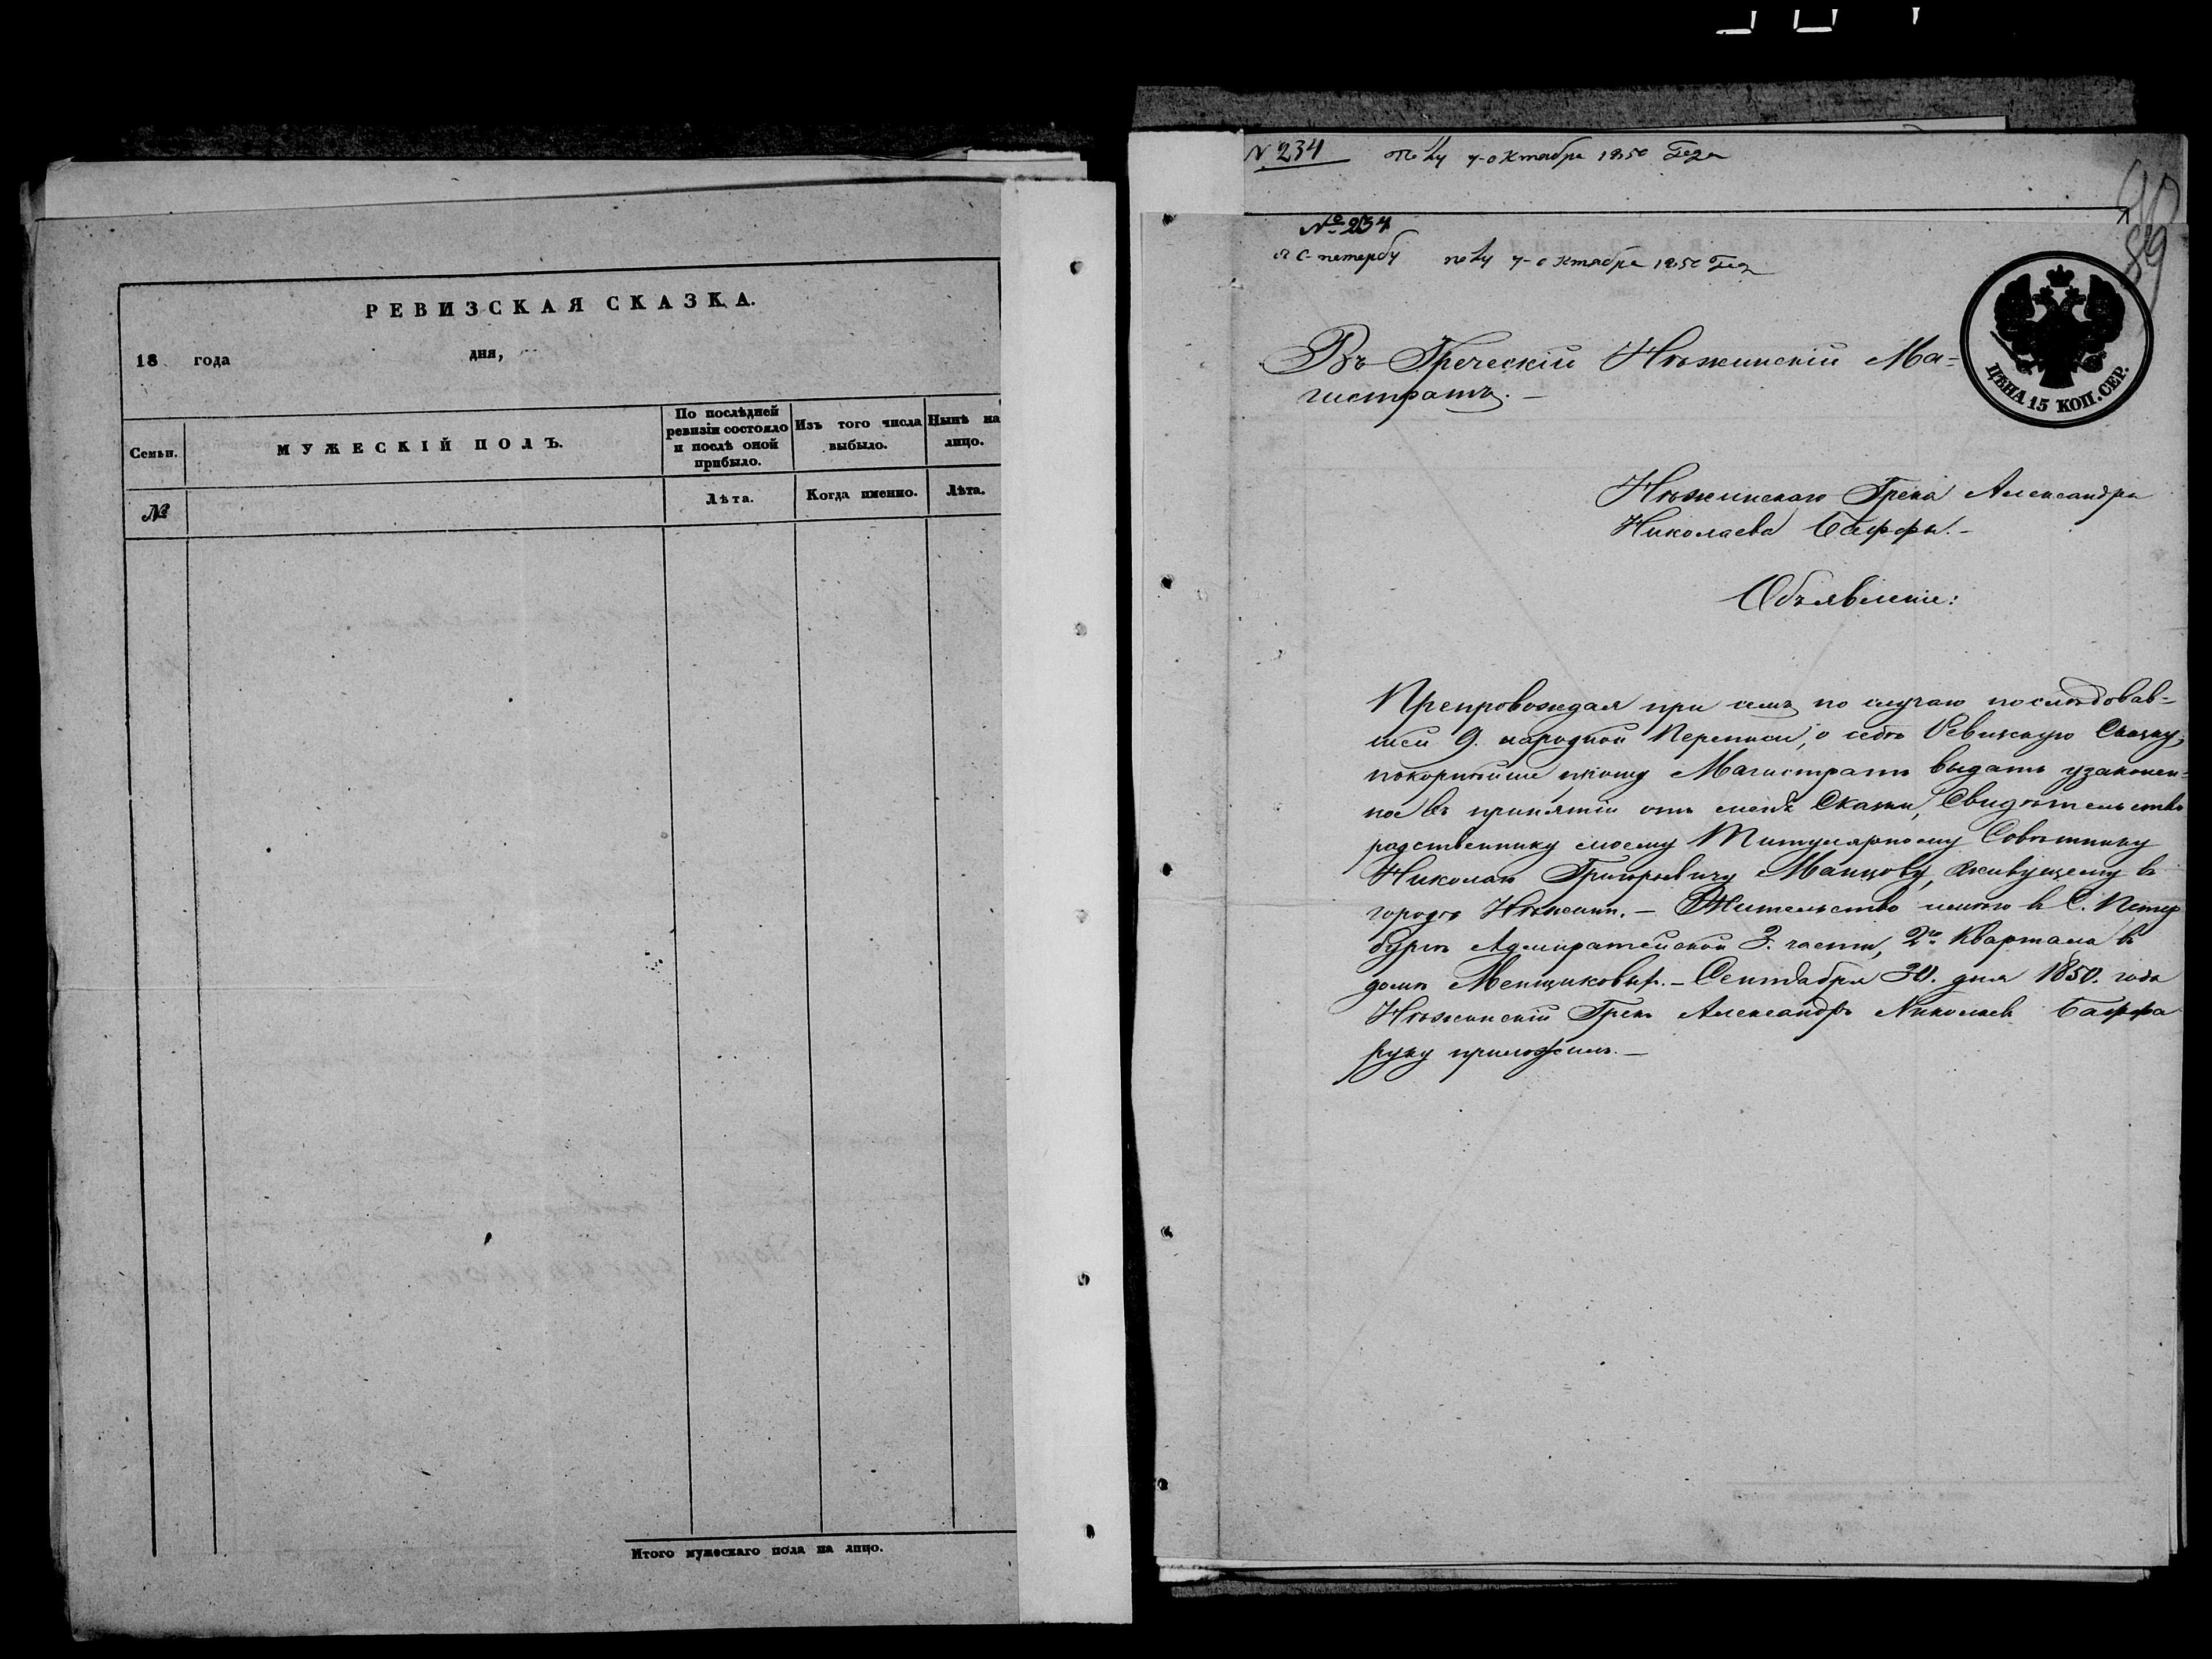 РЕВИЗСКАЯ СКАЗКА.
18 года дня,
Семьи.
МУЖЕСКІЙ ПОЛЪ.
По послѣдней ревизіи состояло и послѣ оной прибыло.
Изъ того числа выбыло.
Нынѣ на лицо.
№
Лѣта.
Когда именно.
Лѣта.
Итого мужескаго пола на лицо.
N 234 7-октября 1850 Года
№ 234
7-октября 1850 Года
89
ЦѢНА 15 КОП. СЕР.
Въ Греческій Нѣжинскій Ма=
гистратъ.—
Нѣжинскаго Грека Александра
Николаева Баффы.—
Объявленіе:
Препровождая при семъ по случаю послѣдовав=
шей 9. народной Переписи, о себѣ Ревизскую Сказку,
покорнѣйше прошу Магистратъ выдать узаконен=
ное въ принятіи отъ меня Сказки, Свидѣтельство
родственнику моему Титулярному Совѣтнику
Николаю Григорьевичу Манцову, живущему въ
городѣ Нѣжинѣ.— Жительство имѣю въ С. Петер
бургѣ Адмиралтейской 3. части, 2го Квартала въ
домѣ Менщиковыхъ.— Сентября 30. дня 1850. года
Нѣжинскій Грекъ Александръ Николаевъ Баффа
руку приложилъ.—